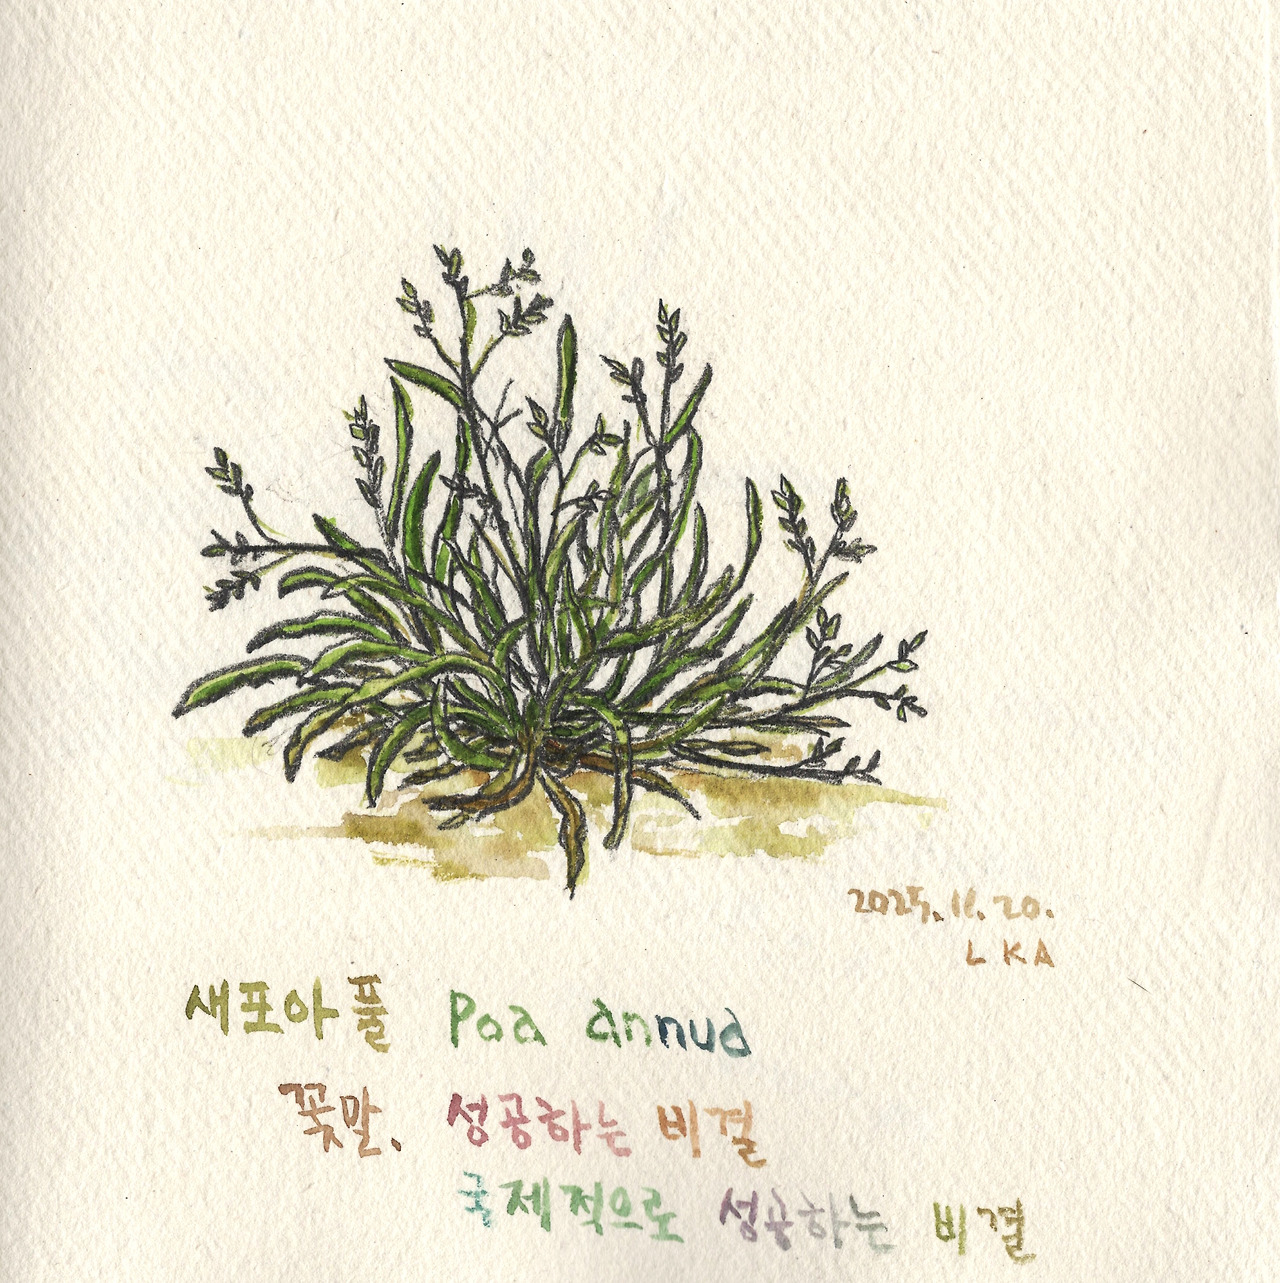 2025. 11. 20.
LKA
새포아풀 Poa annua
꽃말. 성공하는 비결
국제적으로 성공하는 비결